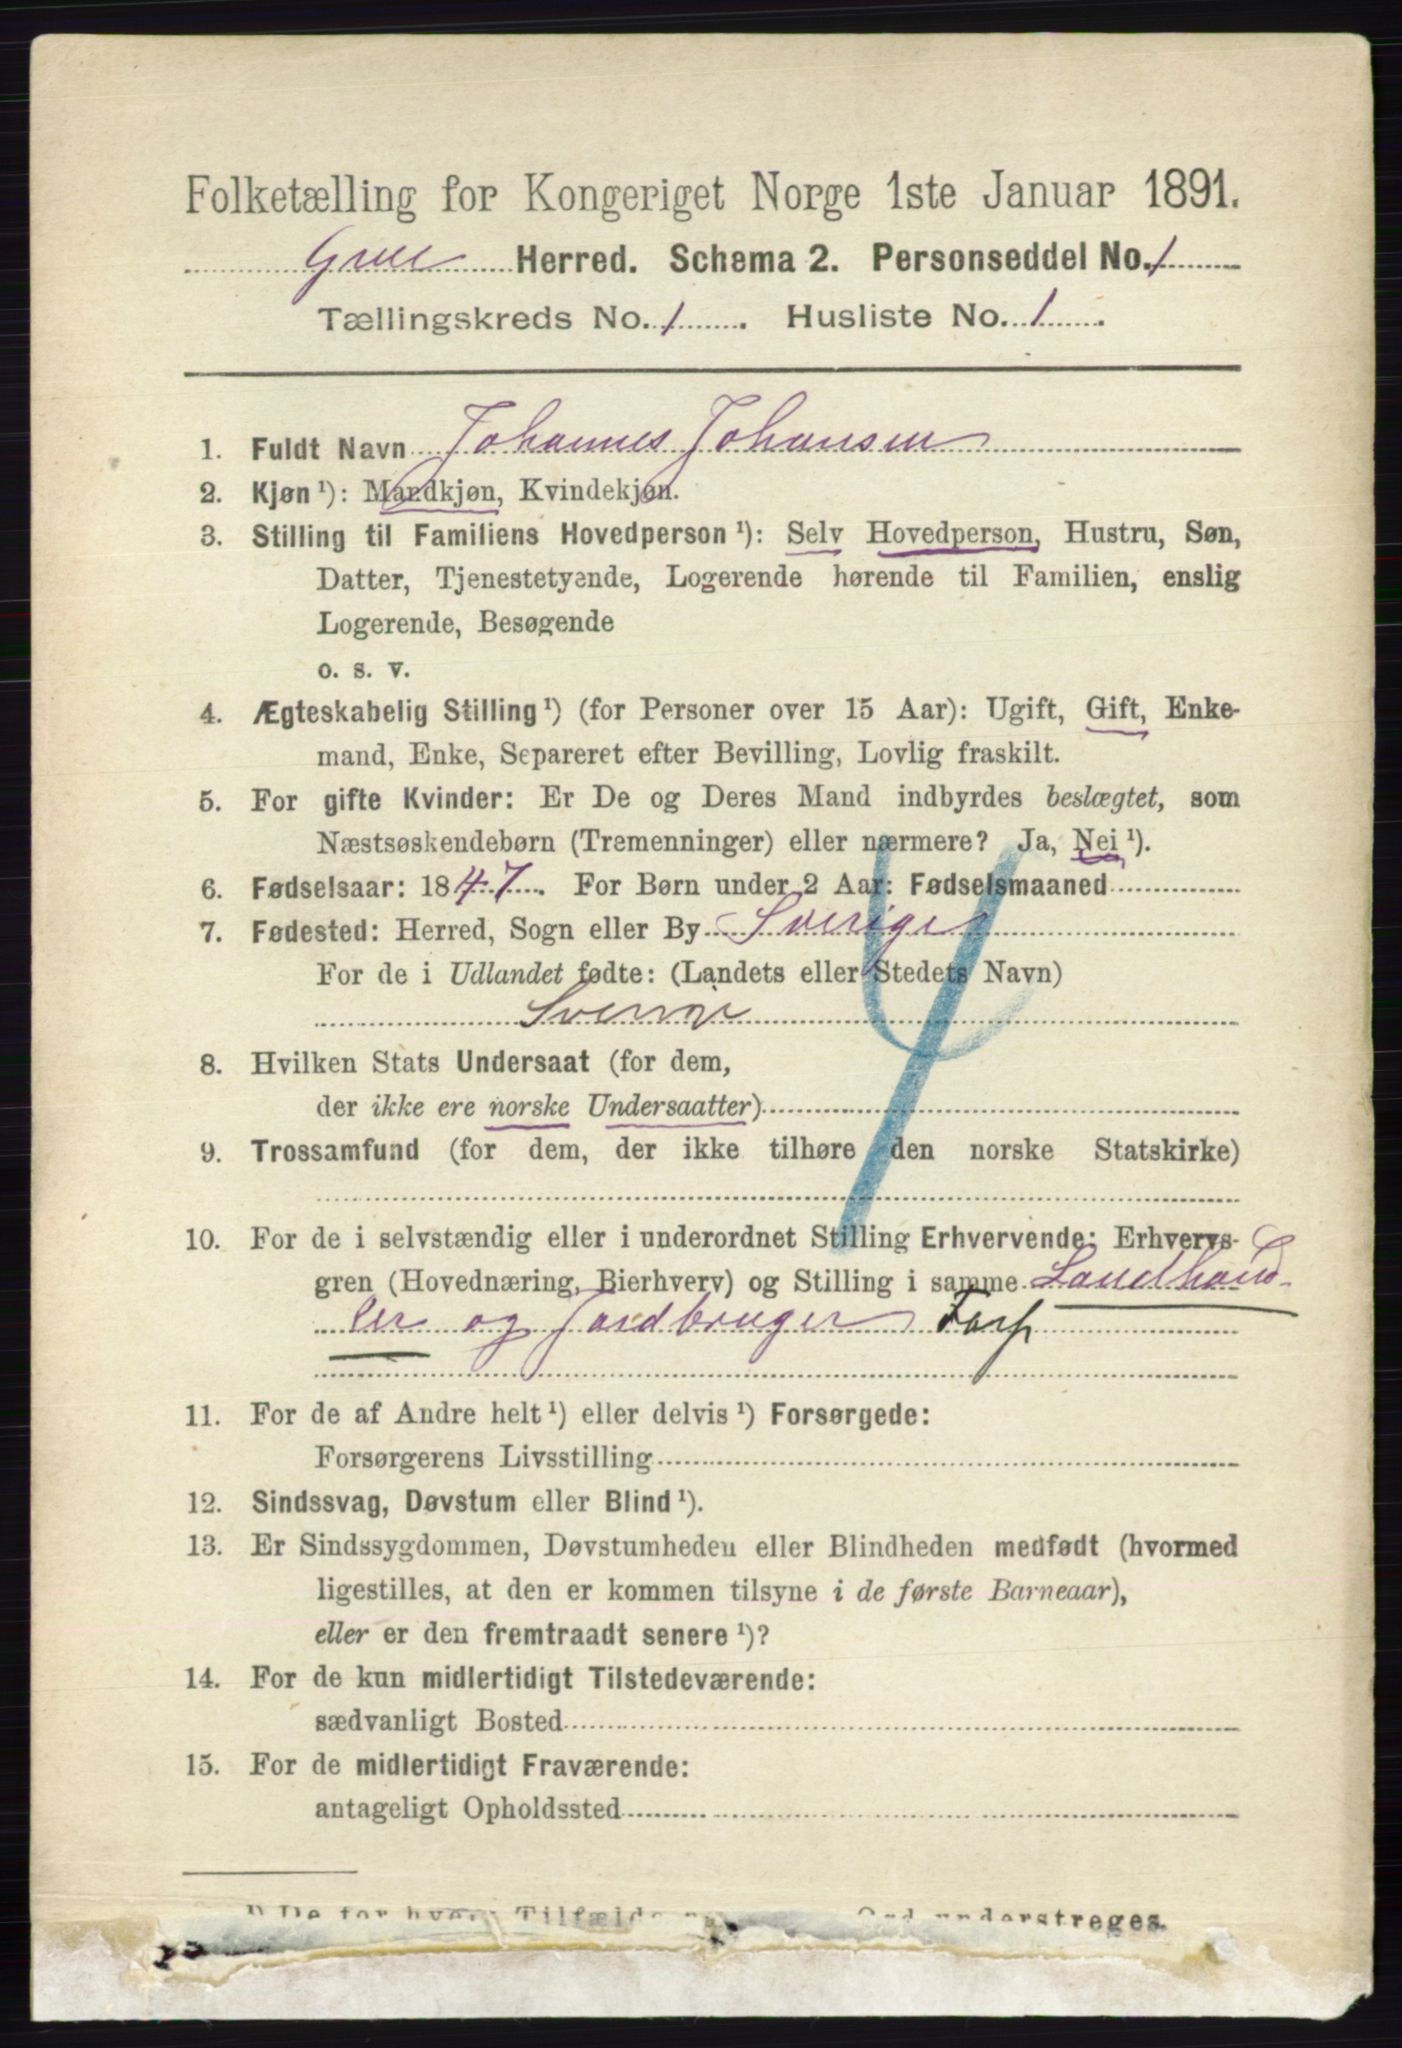 Folketælling for Kongeriget Norge 1ste Januar 1891.
Grue Herred. Schema 2. Personseddel No. 1
Tællingskreds No. 1. Husliste No. 1.
1. Fuldt Navn Johannes Johansen
2. Kjøn¹): Mandkjøn, Kvindekjøn.
3. Stilling til Familiens Hovedperson¹): Selv Hovedperson, Hustru, Søn,
Datter, Tjenestetyende, Logerende hørende til Familien, enslig
Logerende, Besøgende
o. s. v.
4. Ægteskabelig Stilling¹) (for Personer over 15 Aar): Ugift, Gift, Enke-
mand, Enke, Separeret efter Bevilling, Lovlig fraskilt.
5. For gifte Kvinder: Er De og Deres Mand indbyrdes beslægtet, som
Næstsøskendebørn (Tremenninger) eller nærmere? Ja, Nei¹).
6. Fødselsaar: 1847. For Børn under 2 Aar: Fødselsmaaned
7. Fødested: Herred, Sogn eller By Sverige
For de i Udlandet fødte: (Landets eller Stedets Navn)
Sverige
8. Hvilken Stats Undersaat (for dem,
der ikke ere norske Undersaatter)
9. Trossamfund (for dem, der ikke tilhøre den norske Statskirke)
10. For de i selvstændig eller i underordnet Stilling Erhvervende: Erhvervs-
gren (Hovednæring, Bierhverv) og Stilling i samme Landhand-
ler og Jordbruger
11. For de af Andre helt¹) eller delvis¹) Forsørgede:
Forsørgerens Livsstilling
12. Sindssvag, Døvstum eller Blind¹).
13. Er Sindssygdommen, Døvstumheden eller Blindheden medfødt (hvormed
ligestilles, at den er kommen tilsyne i de første Barneaar),
eller er den fremtraadt senere¹)?
14. For de kun midlertidigt Tilstedeværende:
sædvanligt Bosted
15. For de midlertidigt Fraværende:
antageligt Opholdssted
¹) De for hvert Tilfælde Ord understreges.